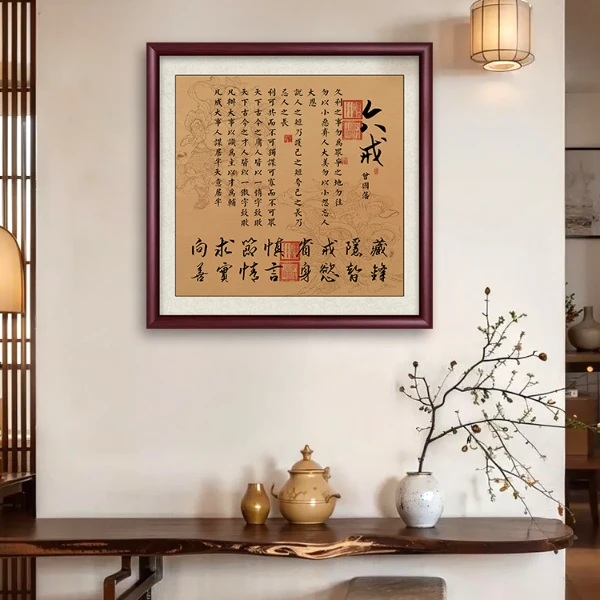 六戒
曾國藩
久利之事勿為眾爭之地勿往
勿以小惡棄人大美勿以小怨忘人
大恩
說人之短乃護己之短夸己之長乃
忌人之長
利可共而不可獨謀可寡而不可眾
天下古今之庸人皆以一惰字致敗
天下古今之才人皆以一傲字致敗
凡辦大事以識為主以才為輔
凡成大事人謀居半天意居半
藏鋒
隱智
戒慾
省身
慎言
節情
求實
向善